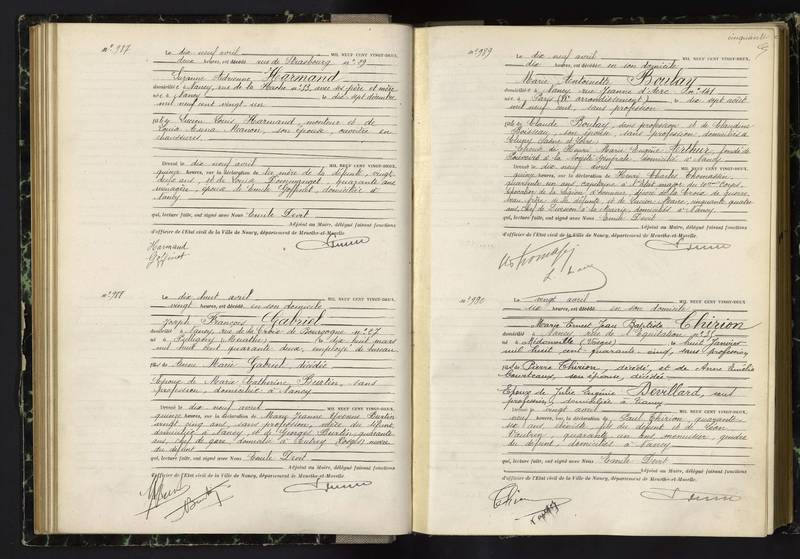 n° 987
Le dix neuf avril MIL NEUF CENT VINGT-DEUX,
deux heures, est décédée rue de Strasbourg n° 59
Suzanne Adrienne Harmand
domiciliée à Nancy, rue de la Hache n° 13, avec ses père et mère
née à Nancy le dix sept décembre
mil neuf cent vingt un
fille de Lucien Louis Harmand, monteur et de
son épouse, ouvrière en
chaussures.
Devant le dix neuf avril MIL NEUF CENT VINGT-DEUX,
quinze heures, sur la déclaration de la mère de la défunte, vingt
ans et de quarante ans
ménagère, épouse de Emile domiciliées à
Nancy
qui, lecture faite, ont signé avec Nous Emile Devit
Adjoint au Maire, délégué faisant fonctions
d'officier de l'Etat civil de la Ville de Nancy, département de Meurthe-et-Moselle.
Harmand
n° 988
Le dix huit avril MIL NEUF CENT VINGT-DEUX,
vingt heures, est décédé, en son domicile
Joseph François Gabriel
domicilié à Nancy, rue de la Croix de Bourgogne n° 27
né à Pulligny (Meurthe) le dix huit mars
mil huit cent quarante deux, employé de bureau
fils de Anne Marie Gabriel, décédée
Epoux de Marie Catherine Burtin, sans
profession, domiciliée à Nancy
Devant le dix neuf avril MIL NEUF CENT VINGT-DEUX,
quinze heures, sur la déclaration de Mary Jeanne Yvonne Burtin
vingt cinq ans, sans profession, nièce du défunt,
domiciliée à Nancy et de Georges Burtin, quarante
ans, chef de gare, domicilié à (Vosges) neveu
du défunt
qui, lecture faite, ont signé avec Nous Emile Devit
Adjoint au Maire, délégué faisant fonctions
d'officier de l'Etat civil de la Ville de Nancy, département de Meurthe-et-Moselle.
cinquante
n° 989
Le dix neuf avril MIL NEUF CENT VINGT-DEUX,
dix heures, est décédée en son domicile
Marie Antoinette Boulay
domiciliée à Nancy rue Jeanne d'Arc n° 141
née à Paris ( arrondissement) le dix sept août
mil neuf ans, sans profession
fille de Claude Boulay, sans profession et de Claudine
son épouse sans profession, domiciliés à
Cluny Saône et Loire
Epouse de Henri Marie Eugène Arthur, fondé de
pouvoirs à la Société Générale domicilié à Nancy
Devant le dix neuf avril MIL NEUF CENT VINGT-DEUX,
quinze heures, sur la déclaration de Henri Charles Thomassin,
quarante un ans, capitaine à l'Etat major du corps
Chevalier de la Légion d'honneur, décoré de la Croix de guerre
beau frère de la défunte et de Lucien cinquante quatre
ans, chef de division à la Mairie, domiciliés à Nancy
qui, lecture faite, ont signé avec Nous Emile Devit
Adjoint au Maire, délégué faisant fonctions
d'officier de l'Etat civil de la Ville de Nancy, département de Meurthe-et-Moselle.
n° 990
Le vingt avril MIL NEUF CENT VINGT-DEUX
six heures, est décédé en son domicile
Marie Ernest Jean Baptiste Thirion
domicilié à Nancy, rue de l'Equitation n° 35
né à (Vosges) le huit Janvier
mil huit cent quarante cinq, sans profession,
fils de Pierre Thirion, décédé, et de Anne Emélie
son épouse, décédée
Epoux de Julie Eugénie Dovillard, sans
profession, domiciliée à Nancy
Devant le vingt avril MIL NEUF CENT VINGT-DEUX,
neuf heures, sur la déclaration de Paul Thirion, quarante
six ans, fils du défunt et de Léon
Vautrin, quarante un ans, menuisier, gendre
du défunt, domiciliés à Nancy
qui, lecture faite, ont signé avec Nous Emile Devit
Adjoint au Maire, délégué faisant fonctions
d'officier de l'Etat civil de la Ville de Nancy, département de Meurthe-et-Moselle.
Thirion